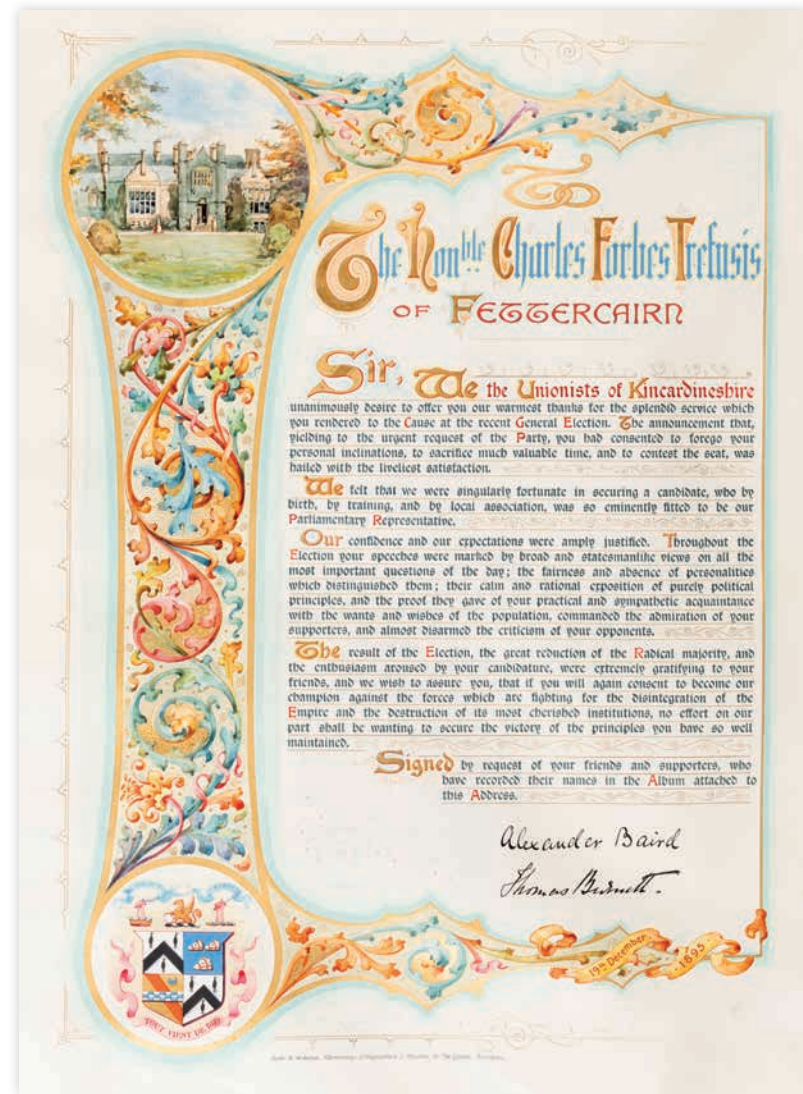 To
The Honble Charles Forbes Trefusis
OF FETTERCAIRN
Sir, We the Unionists of Kincardineshire
unanimously desire to offer you our warmest thanks for the splendid service which
you rendered to the Cause at the recent General Election. The announcement that,
yielding to the urgent request of the Party, you had consented to forego your
personal inclinations, to sacrifice much valuable time, and to contest the seat, was
hailed with the liveliest satisfaction.
We felt that we were singularly fortunate in securing a candidate, who by
birth, by training, and by local association, was so eminently fitted to be our
Parliamentary Representative.
Our confidence and our expectations were amply justified. Throughout the
Election your speeches were marked by broad and statesmanlike views on all the
most important questions of the day; the fairness and absence of personalities
which distinguished them; their calm and rational exposition of purely political
principles, and the proof they gave of your practical and sympathetic acquaintance
with the wants and wishes of the population, commanded the admiration of your
supporters, and almost disarmed the criticism of your opponents.
The result of the Election, the great reduction of the Radical majority, and
the enthusiasm aroused by your candidature, were extremely gratifying to your
friends, and we wish to assure you, that if you will again consent to become our
champion against the forces which are fighting for the disintegration of the
Empire and the destruction of its most cherished institutions, no effort on our
part shall be wanting to secure the victory of the principles you have so well
maintained.
Signed by request of your friends and supporters, who
have recorded their names in the Album attached to
this Address.
Alexander Baird
Thomas Burnett.
19th December 1895
TOUT VIENT DE DIEU